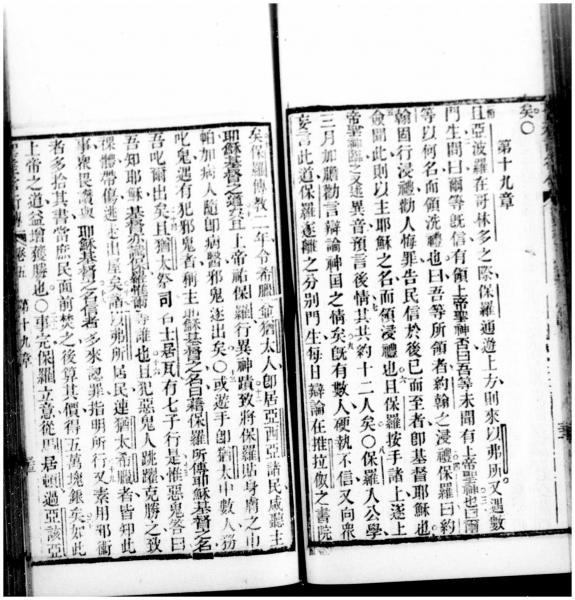 矣○
第十九章
且亞波羅在哥林多之際保羅通遊上方則來以弗所又遇數
門生問曰爾等旣信有領上帝聖神否曰吾等未聞有上帝聖神也曰爾
等以何名而領洗禮也曰吾等所領者約翰之浸禮保羅曰約
翰固行浸禮勸人悔罪告民信於後己而至者卽基督耶穌也
僉聞此則以主耶穌之名而領浸禮也且保羅按手諸上遂上
帝聖神臨之又達異音預言後情其共約十二人矣○保羅入公學
三月加膽勸言辯論神国之情矣旣有數人硬執不信又向衆
妄言此道保羅遂離之分別門生每日辯論在推拉奴之書院
矣保羅傳教二年令希臘並猶太人卽居亞西亞諸民咸聽主
耶穌基督之道且上帝祐保羅行異神蹟致將保羅貼身膚之巾
帕加病人隨卽病醫邪鬼逐出矣○或遊手卽猶太中數人務
叱鬼遇有犯邪鬼者稱主耶穌基督之名曰藉保羅所傳耶穌基督之名
吾叱爾出矣且猶太祭司名士居瓦有七子行是惟惡鬼答曰
吾知耶穌基督亦識保羅惟爾等誰也且犯惡鬼人跳躍克勝之致
裸體帶傷逃走出屋矣諸以弗所居民連猶太希臘者皆知此
事衆畏讚與耶穌基督之名信者多來認罪指明所行又素用邪術
者多拾其書當庶民面前焚之後算其價得五萬塊銀矣如此
上帝之道益增獲勝也○事完保羅立意從馬居頓過亞該亞
卷五 第十九章